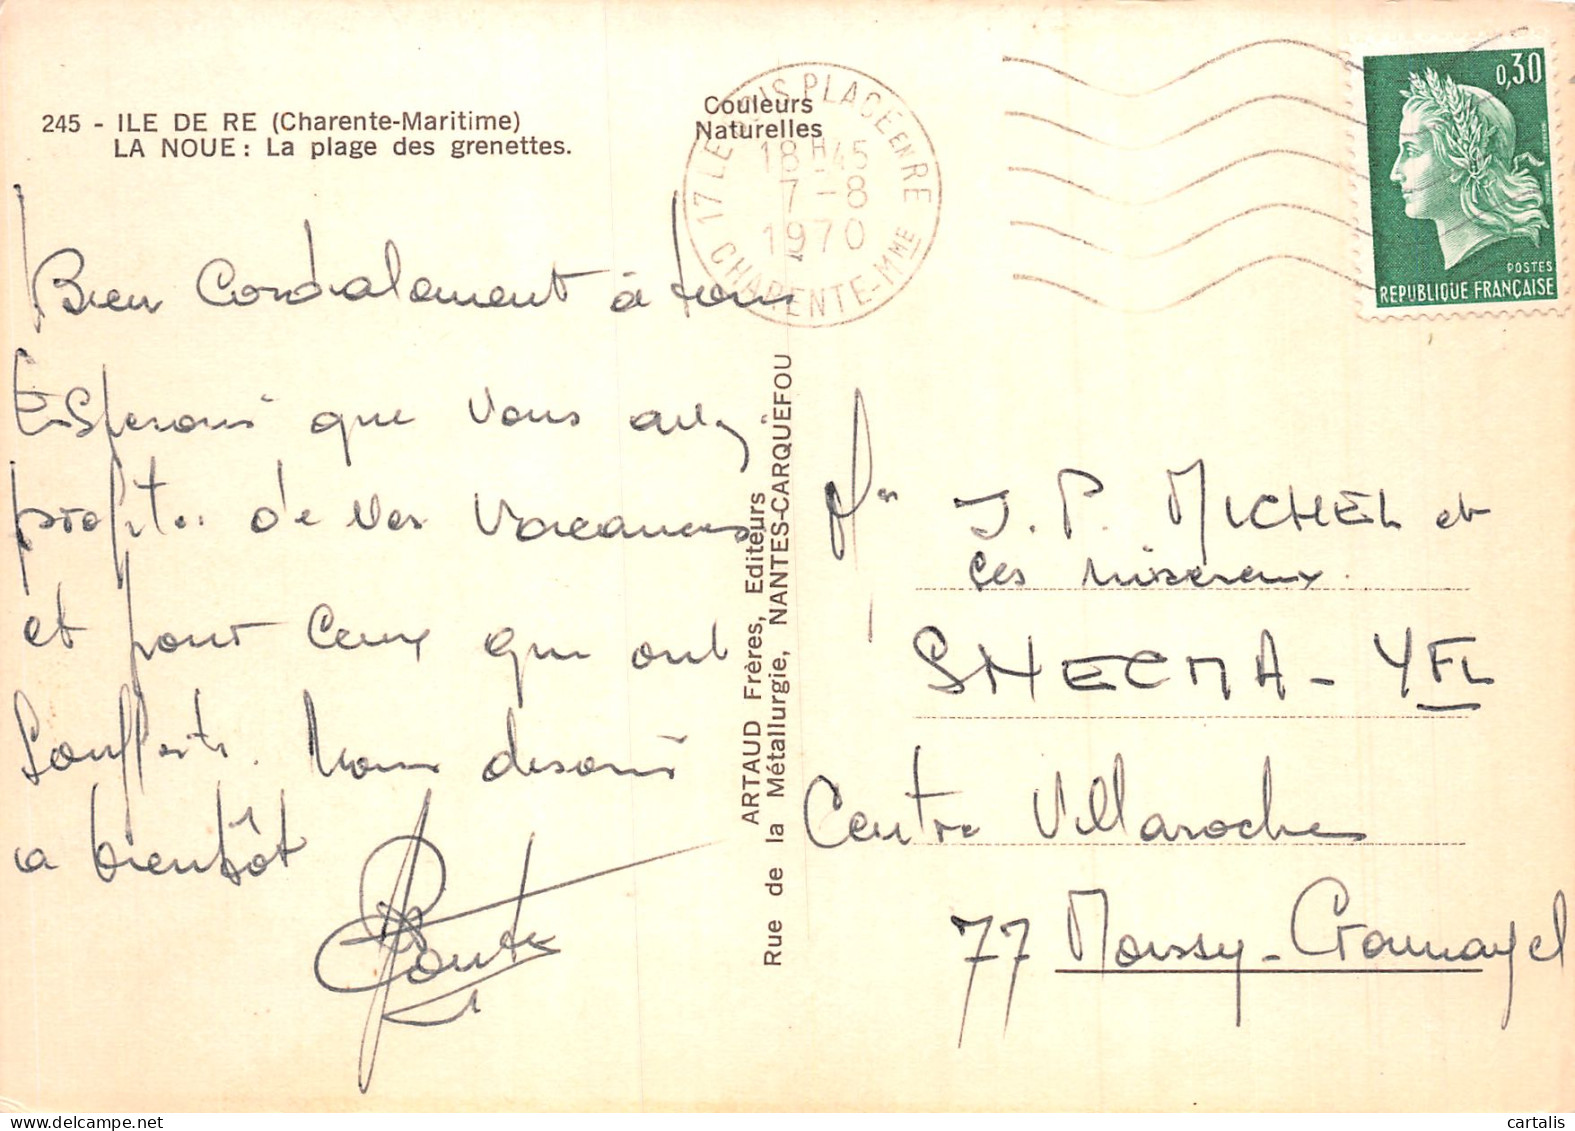 245 - ILE DE RE (Charente-Maritime)
LA NOUE : La plage des grenettes.
Couleurs
Naturelles
17 LE BOIS PLAGE EN RE
18H45
7-8
1970
CHARENTE-MME
0,30
POSTES
REPUBLIQUE FRANÇAISE
Bien Cordialement à tous
Esperons que vous avez
profité de vos vacances
et pour ceux qui ont
Souffert. Nous disons
a bientôt
ARTAUD Frères, Editeurs
Rue de la Métallurgie, NANTES-CARQUEFOU
Mr J. P. MICHEL et
ces misereux.
SNECMA - YFL
Centre Villaroche
77 Moissy-Cramayel
cartalis